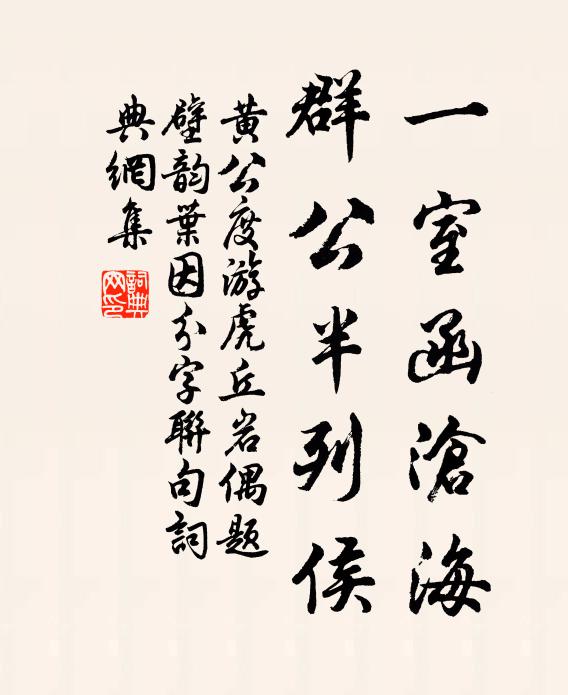 一室函滄海
群公半列侯
黄公度游虎丘岩偶题
壁韵葉因分字聯句詞
典網集
詞典網印